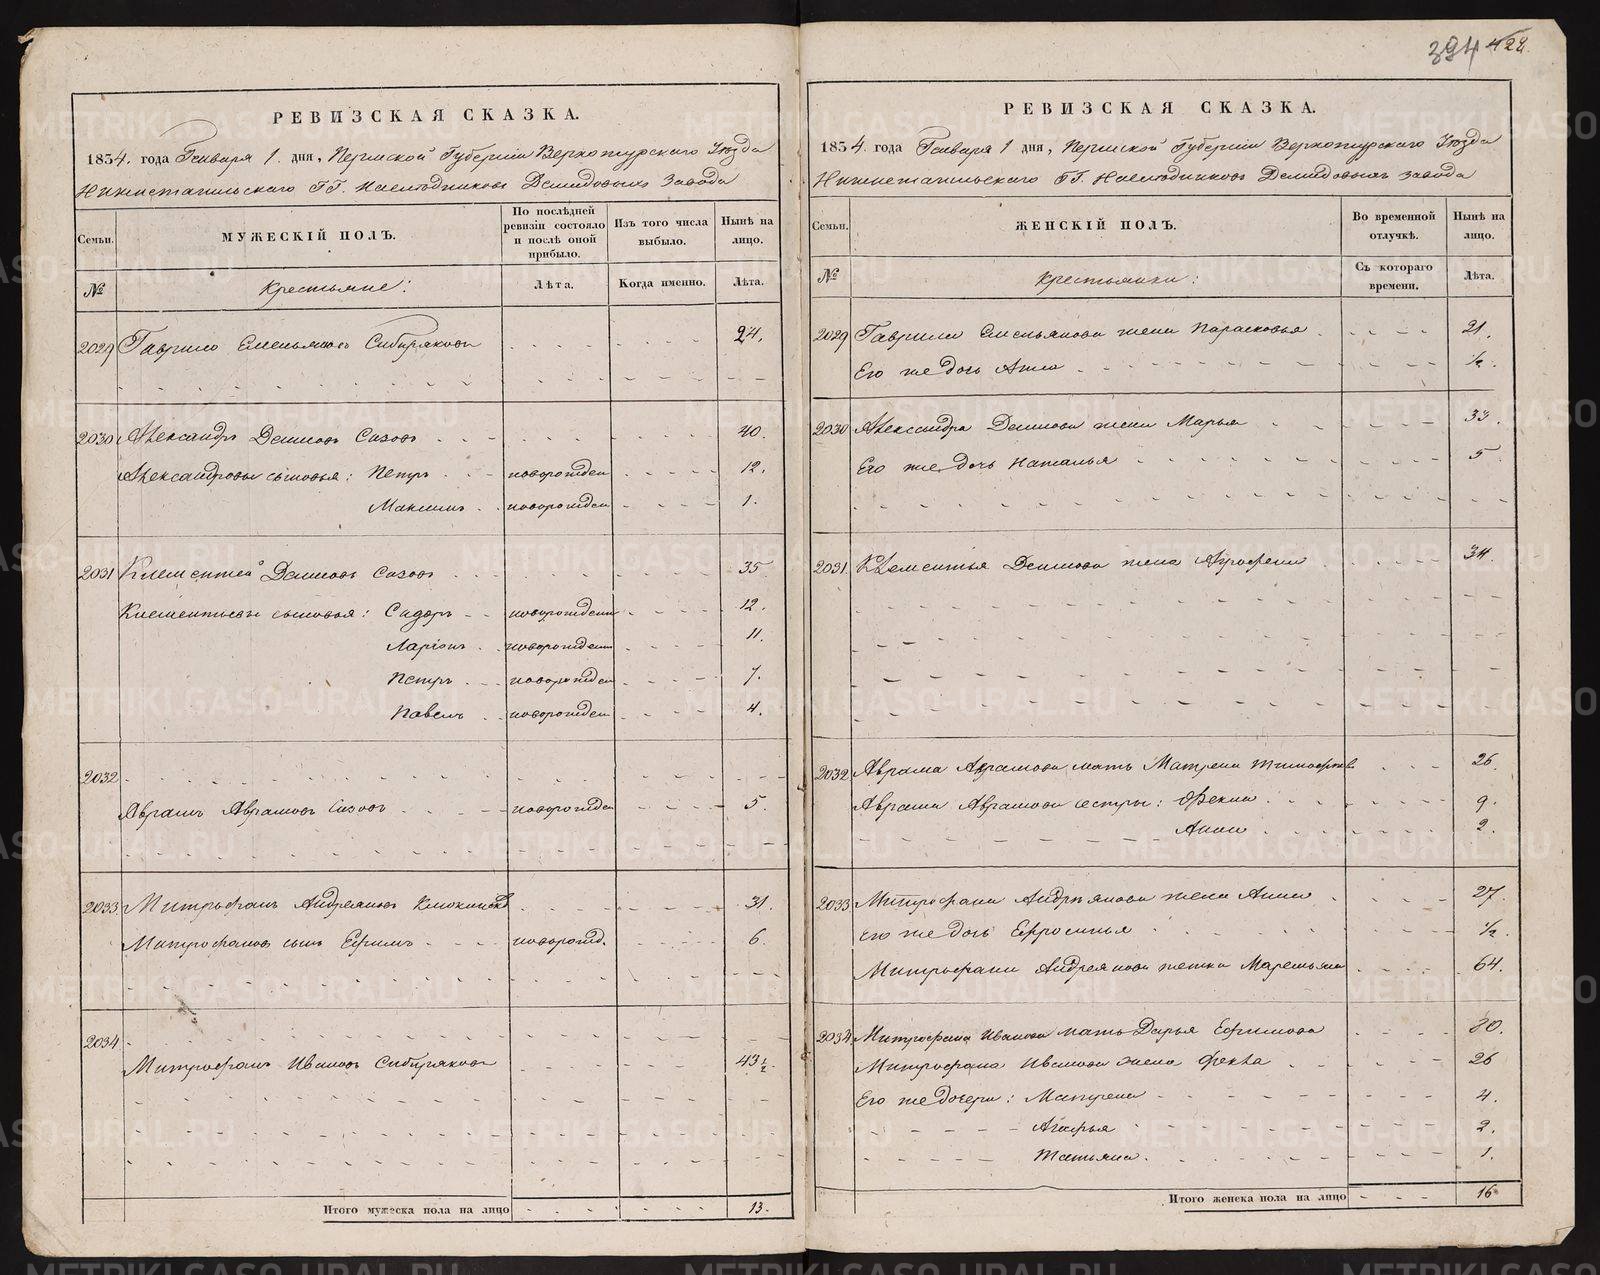 394 422.
РЕВИЗСКАЯ СКАЗКА.
1834. года Генваря 1. дня, Пермской Губерніи Верхотурскаго Уѣзда
Нижнетагильскаго ГГ. Наслѣдниковъ Демидовыхъ Завода
Семьи.
МУЖЕСКІЙ ПОЛЪ.
По послѣдней ревизіи состояло и послѣ оной прибыло.
Изъ того числа выбыло.
Нынѣ на лицо.
№
Крестьяне:
Лѣта.
Когда именно.
Лѣта.
2029 Гаврило Емельяновъ Сибиряковъ 24.
2030 Александръ Денисовъ Сазовъ 40.
Александровы сыновья: Петръ новорожден 12.
Максимъ новорожден 1.
2031 Климентей Денисовъ Сазовъ 35
Климентьевы сыновья: Сидоръ новорожден 12.
Ларіонъ новорожден 11.
Петръ новорожден 7.
Павелъ новорожден 4.
2032
Аврамъ Аврамовъ Сазовъ новорожден 5.
2033 Митрофанъ Андреяновъ 31.
Митрофановъ сынъ Ефимъ новорожд. 6.
2034
Митрофанъ Ивановъ Сибиряковъ 43½.
Итого мужеска пола на лицо 13.
РЕВИЗСКАЯ СКАЗКА.
1834. года Генваря 1 дня, Пермской Губерніи Верхотурскаго Уѣзда
Нижнетагильскаго ГГ. Наслѣдниковъ Демидовыхъ завода
Семьи.
ЖЕНСКІЙ ПОЛЪ.
Во временной отлучкѣ.
Нынѣ на лицо.
№
Крестьянки:
Съ котораго времени.
Лѣта.
2029 Гаврила Емельянова жена Парасковья 21.
Его же дочь Анна ½.
2030 Александра Денисова жена Марья 33.
Его же дочь Наталья 5
2031. Климентья Денисова жена Аграфена 34.
2032 Аврама Аврамова мать Матрена Тимофѣева 26.
Аврама Аврамова сестры: Фекла 9.
Анна 2.
2033 Митрофана Андреянова жена Анна 27.
Его же дочь Ефросинья ½.
Митрофана Андреянова тетка Маремьяна 64.
2034 Митрофана Иванова мать Дарья Ефимова 80.
Митрофана Иванова жена Фекла 26
Его же дочери: Матрена 4.
Агафья 2.
Татьяна. 1.
Итого женска пола на лицо 16.
METRIKI.GASO-URAL.RU